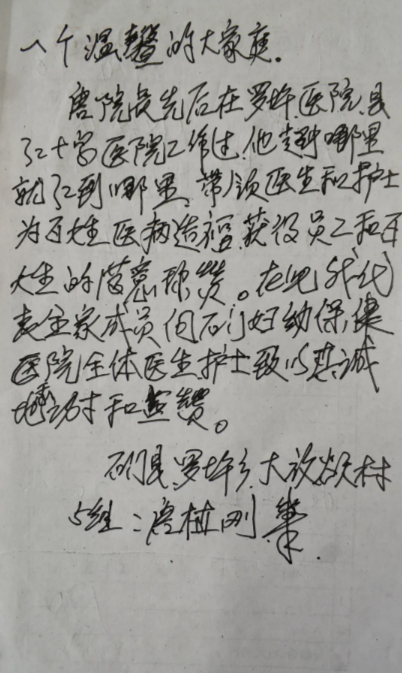 一个温馨的大家庭.
唐院长先后在罗坪医院,县
红十字医院工作过,他走到哪里
就红到哪里,带领医生和护士
为百姓医病造福,获得员工和百
姓的满意称赞。在此我代
表全家成员向石门妇幼保健
医院全体医生护士致以真诚
感谢和点赞。
石门县罗坪乡大
5组:唐植刚